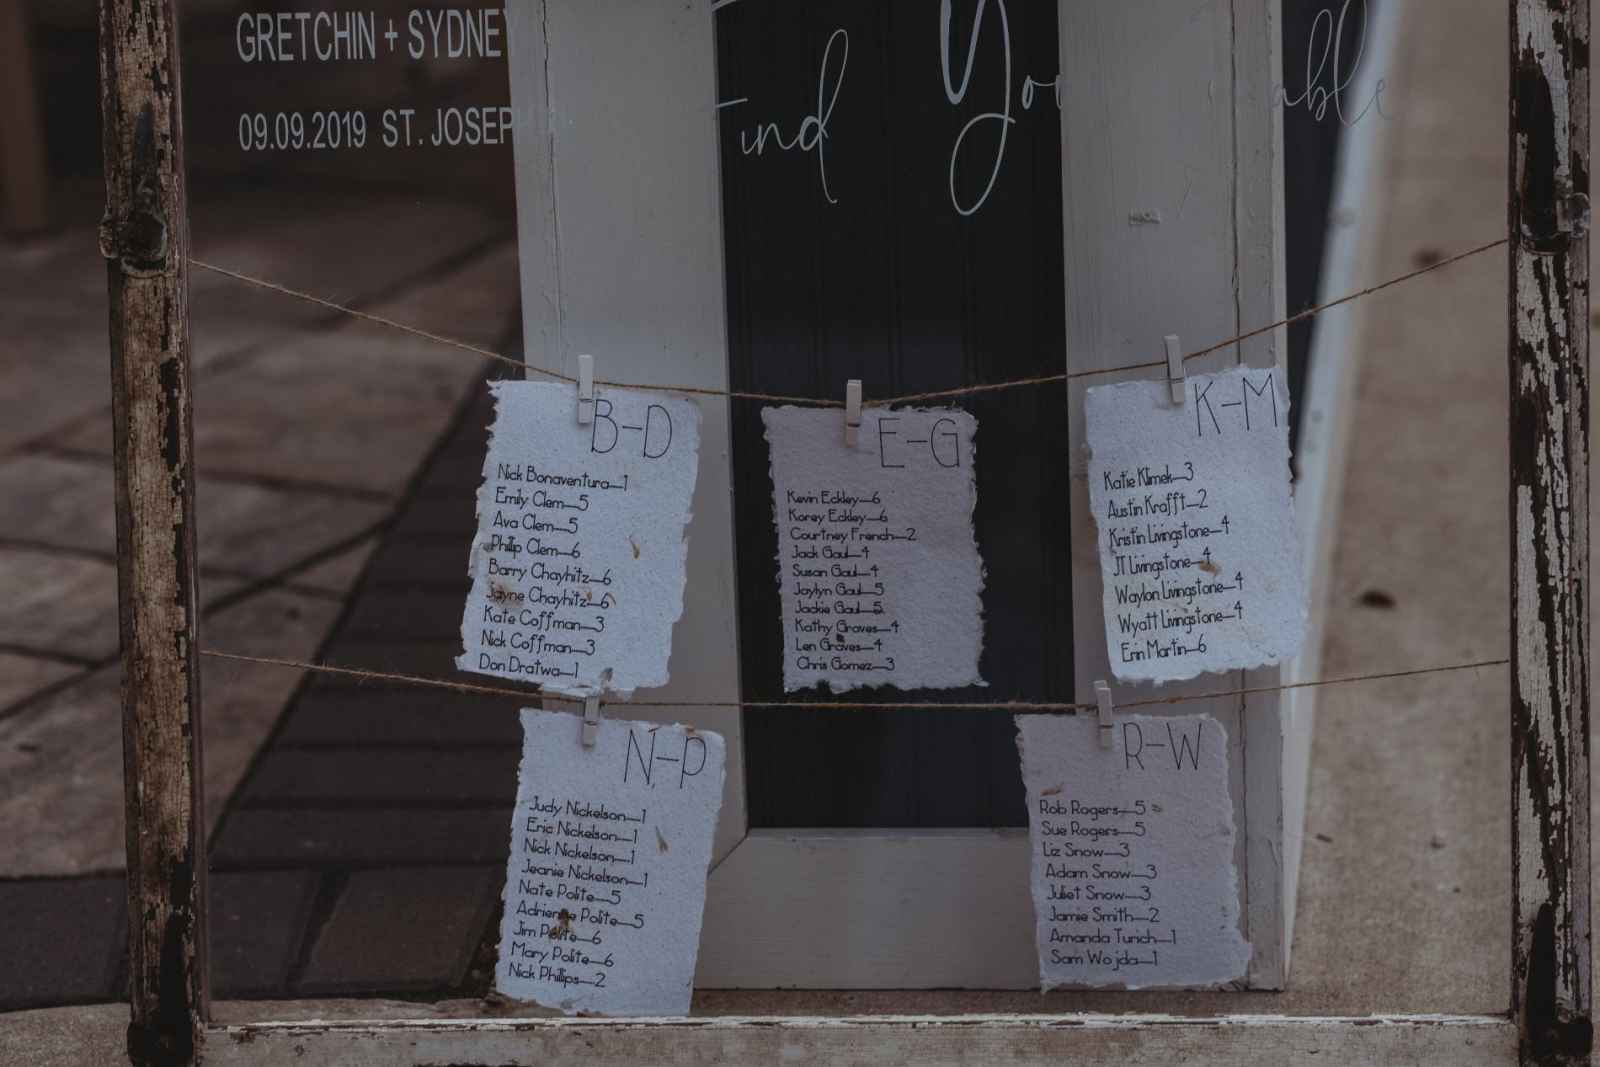 GRETCHIN + SYDNEY
09.09.2019 ST. JOSEP
Find Your Table
B-D
Nick Bonaventura—1
Emily Clem—5
Ava Clem—5
Phillip Clem—6
Barry Chayhitz—6
Jayne Chayhitz—6
Kate Coffman—3
Nick Coffman—3
Don Dratwa—1
E-G
Kevin Eckley—6
Korey Eckley—6
Courtney French—2
Jack Gaul—4
Susan Gaul—4
Jaylyn Gaul—5
Jackie Gaul—5
Kathy Graves—4
Len Graves—4
Chris Gomez—3
K-M
Katie Klimek—3
Austin Krafft—2
Kristin Livingstone—4
JT Livingstone—4
Waylon Livingstone—4
Wyatt Livingstone—4
Erin Martin—6
N-P
Judy Nickelson—1
Eric Nickelson—1
Nick Nickelson—1
Jeanie Nickelson—1
Nate Polite—5
Adrienne Polite—5
Jim Polite—6
Mary Polite—6
Nick Phillips—2
R-W
Rob Rogers—5
Sue Rogers—5
Liz Snow—3
Adam Snow—3
Juliet Snow—3
Jamie Smith—2
Amanda Turich—1
Sam Wojda—1